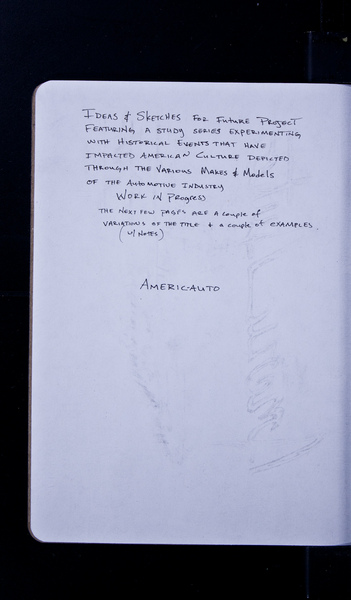 IDEAS & SKETCHES FOR FUTURE PROJECT
FEATURING A STUDY SERIES EXPERIMENTING
WITH HISTORICAL EVENTS THAT HAVE
IMPACTED AMERICAN CULTURE DEPICTED
THROUGH THE VARIOUS MAKES & MODELS
OF THE AUTOMOTIVE INDUSTRY
WORK IN PROGRESS
THE NEXT FEW PAGES ARE A COUPLE OF
VARIATIONS OF THE TITLE & A COUPLE OF EXAMPLES.
(W/ NOTES)
AMERIC-AUTO